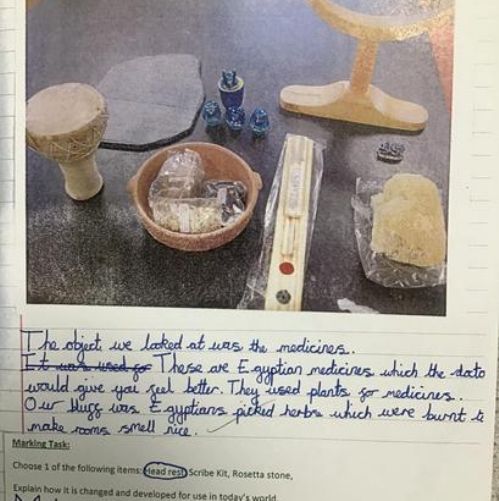 The object we looked at was the medicines.
It was used for These are Egyptian medicines which the docto
would give you feel better. They used plants for medicines.
Our bluff was Egyptians picked herbs which were burnt t
make rooms smell nice.
Marking Task:
Choose 1 of the following items: Head rest, Scribe Kit, Rosetta stone,
Explain how it is changed and developed for use in today's world